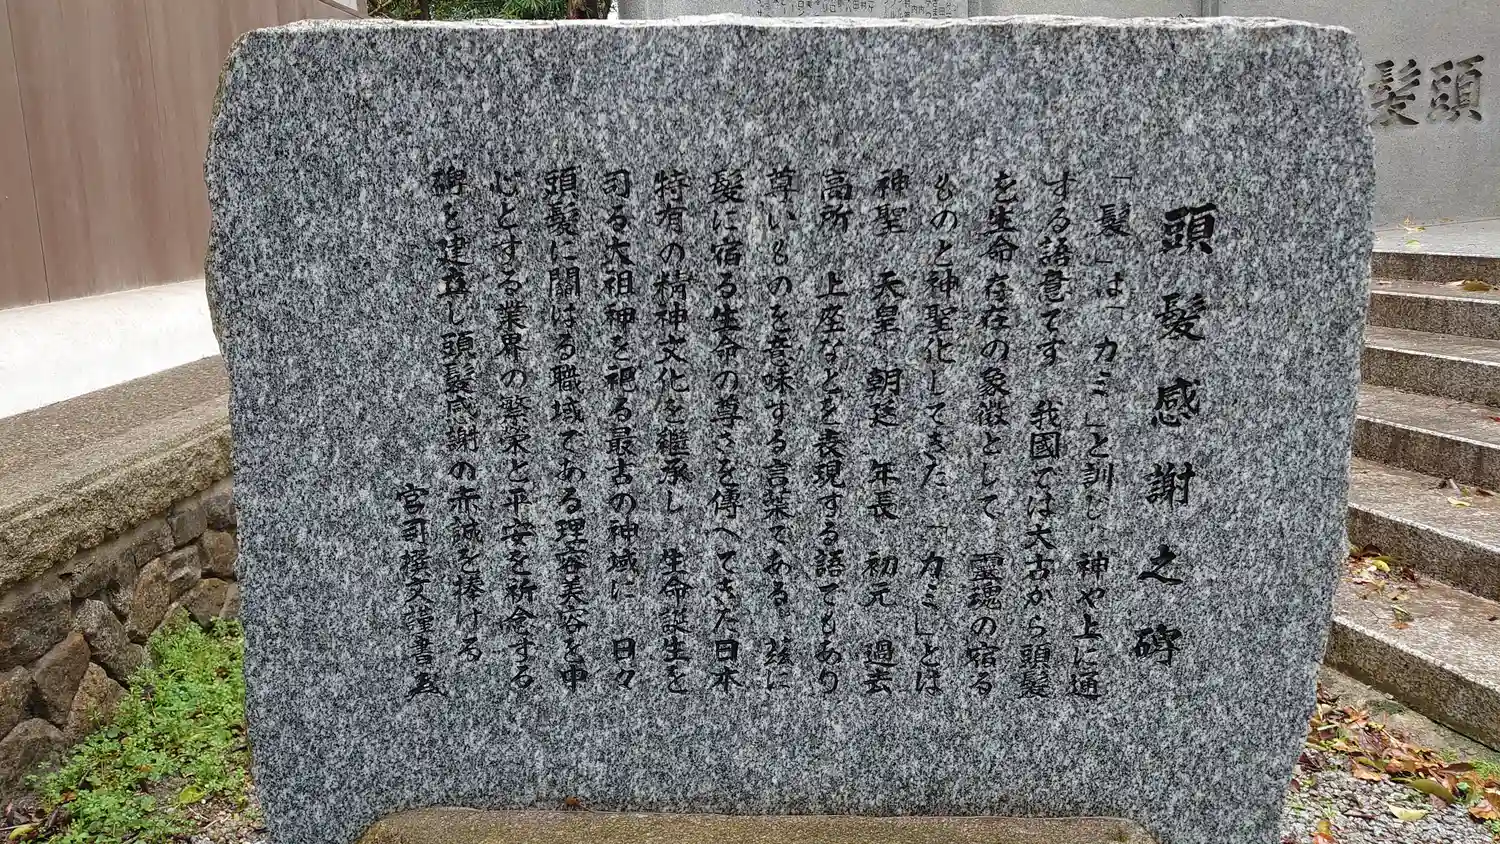 頭髪感謝之碑
「髪」は「カミ」と訓じ 神や上に通
する語意です 我國では太古から頭髪
を生命存在の象徴として 霊魂の宿る
ものと神聖化してきた、「カミ」とは
神聖 天皇 朝廷 年長 初元 過去
高所 上座などを表現する語でもあり
尊いものを意味する言葉である、茲に
髪に宿る生命の尊さを傳へてきた日本
特有の精神文化を継承し 生命誕生を
司る大祖神を祀る最古の神域に 日々
頭髪に關はる職域である理容美容を中
心とする業界の繁栄と平安を祈念する
碑を建立し頭髪感謝の赤誠を捧ける
宮司撰文謹書
頭髪